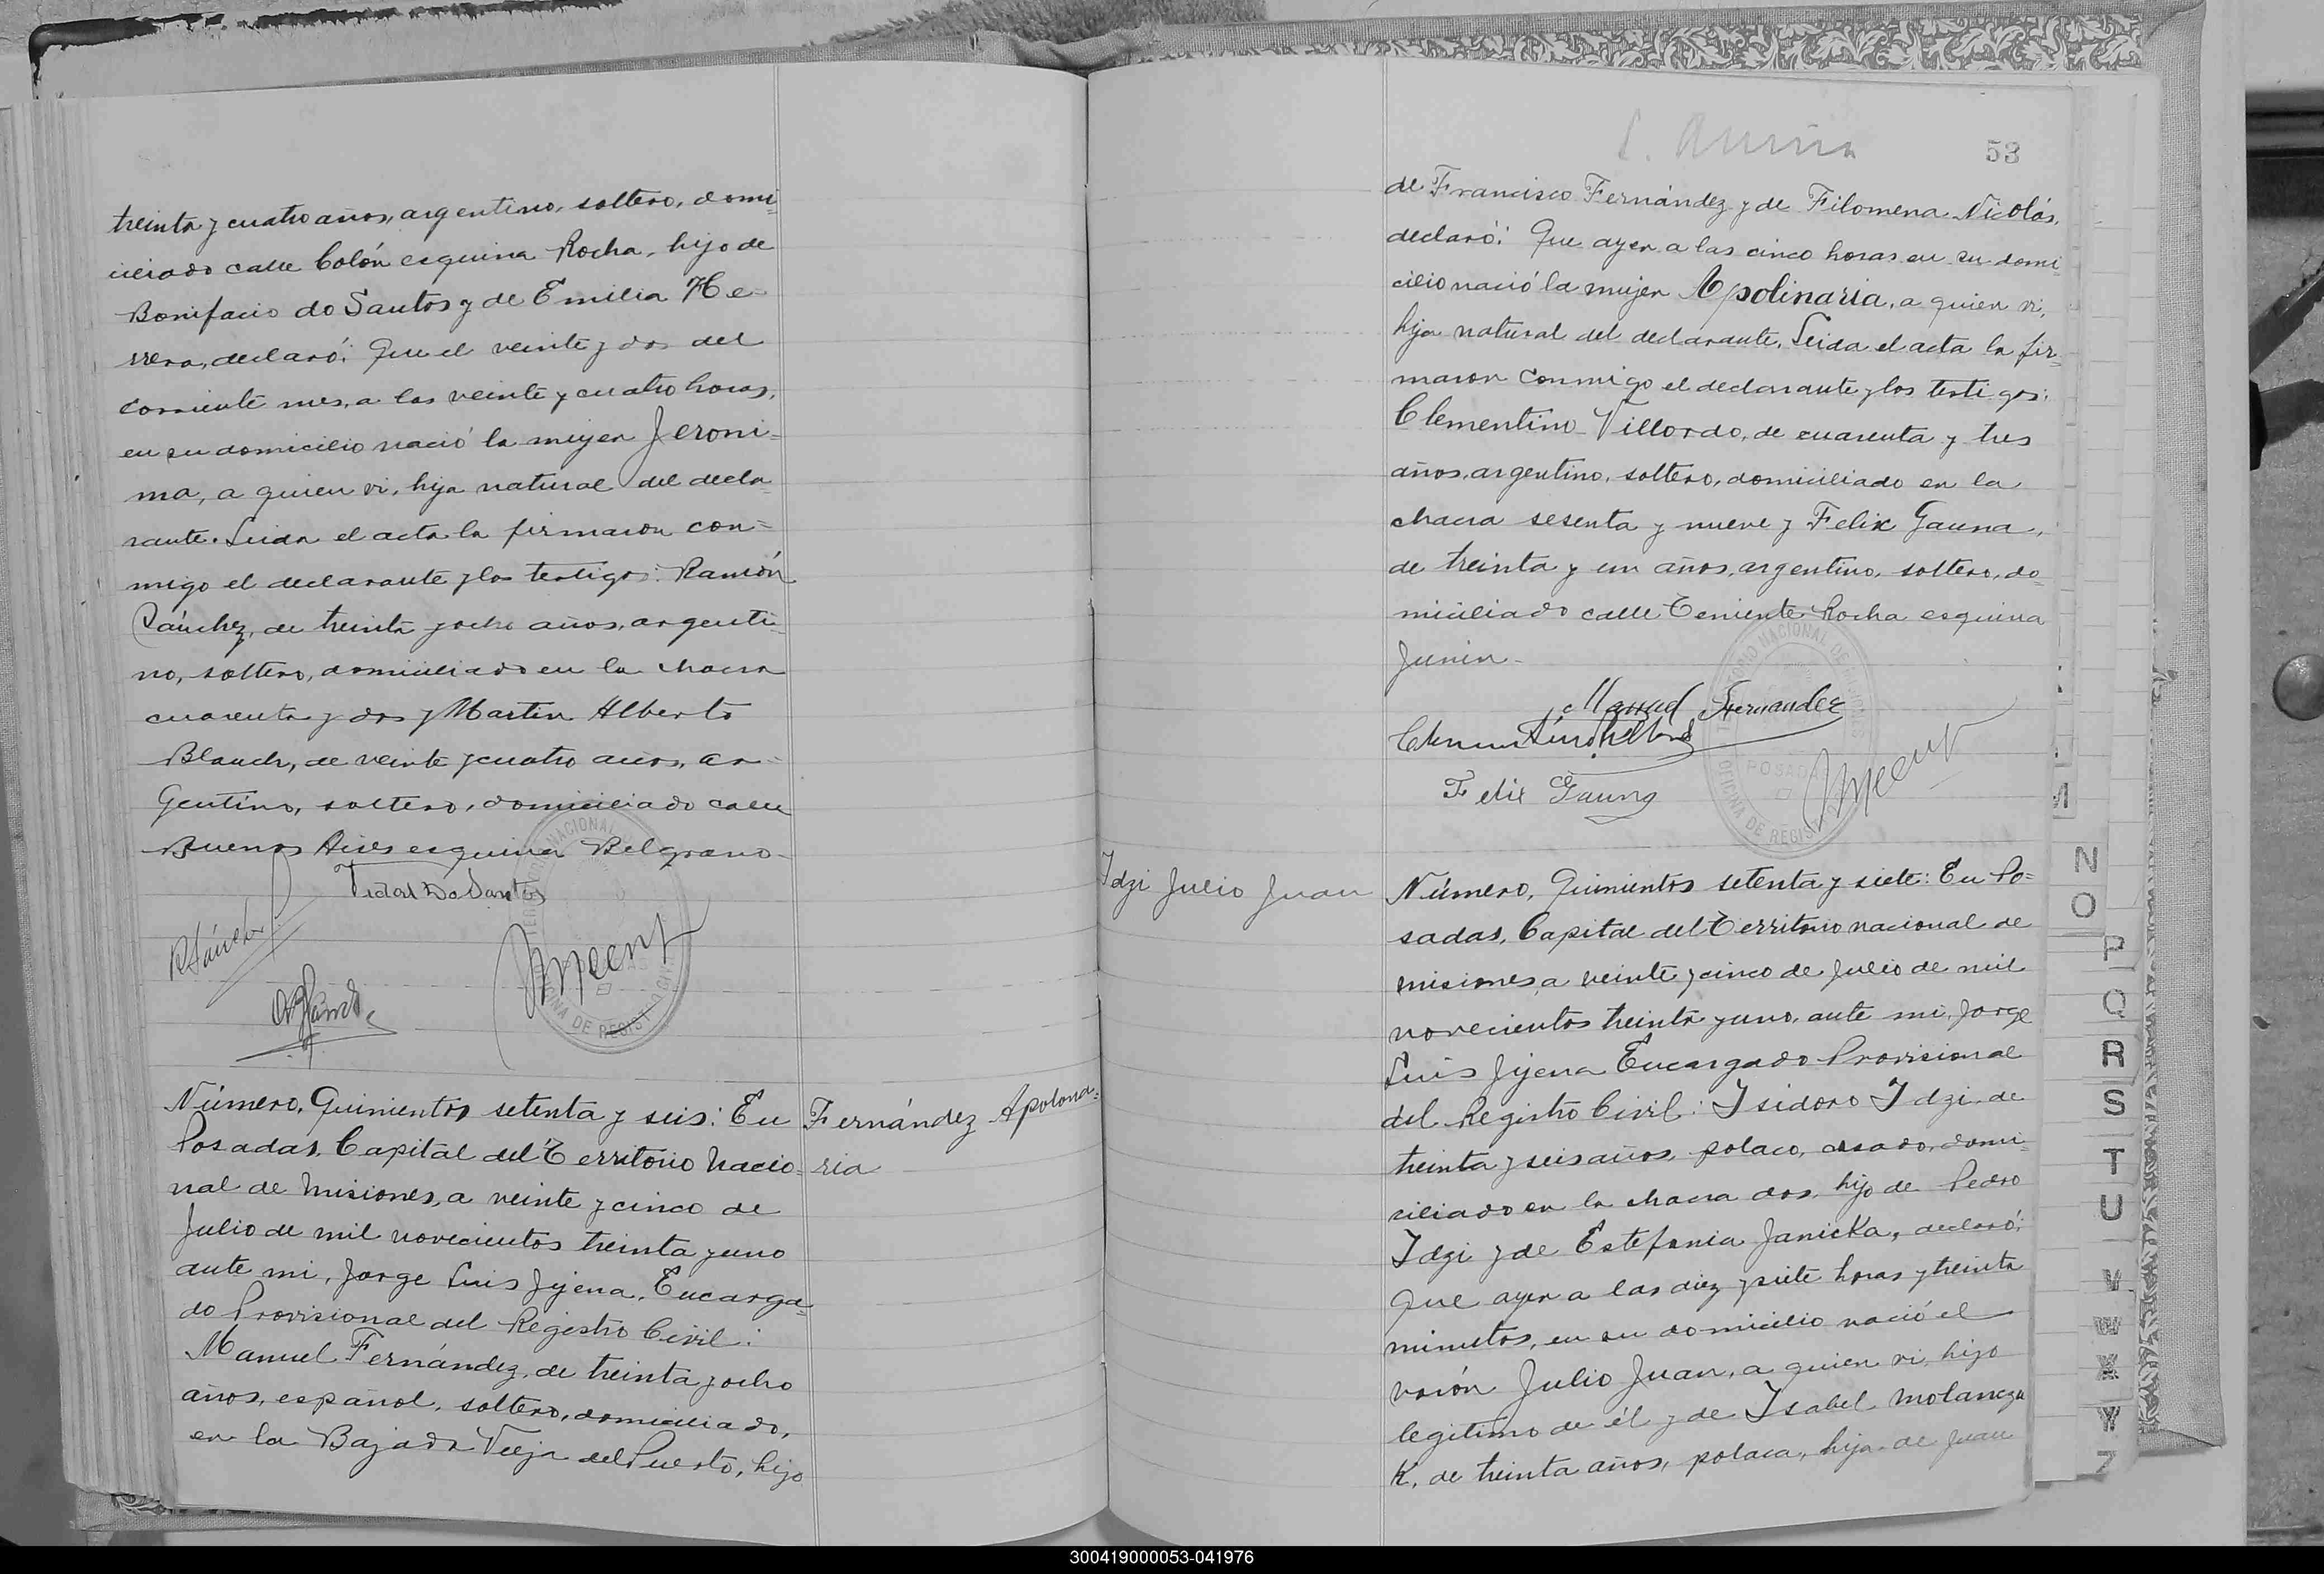 treinta y cuatro años, argentino, soltero, domi-
ciliado calle Colón esquina Rocha, hijo de
Bonifacio do Santos y de Emilia He-
rrera, declaró: Que el veinte y dos del
corriente mes, a las veinte y cuatro horas,
en su domicilio nació la mujer Jeroni-
ma, a quien vi, hija natural del decla-
rante. Leida el acta la firmaron con-
migo el declarante y los testigos: Ramón
Sánchez, de treinta y ocho años, argenti-
no, soltero, domiciliado en la chacra
cuarenta y dos y Martin Alberto
Blanch, de veinte y cuatro años, ar-
gentino, soltero, domiciliado calle
Buenos Aires esquina Belgrano-
Vidal Do Santos
RSánchez
Número, Quinientos setenta y seis: En
Posadas, Capital del Territorio Nacio-
nal de Misiones, a veinte y cinco de
Julio de mil novecientos treinta y uno
ante mi, Jorge Luis Jijena, Encarga-
do Provisional del Registro Civil:
Manuel Fernández, de treinta y ocho
años, español, soltero, domiciliado,
en la Bajada Vieja del Puerto, hijo
Fernández Apolona-
ria
53
de Francisco Fernández y de Filomena Nicolás,
declaró: Que ayer a las cinco horas en su domi-
cilio nació la mujer Apolinaria, a quien vi,
hija natural del declarante. Leida el acta la fir-
maron conmigo el declarante y los testigos:
Clementino Villordo, de cuarenta y tres
años, argentino, soltero, domiciliado en la
chacra sesenta y nueve y Felix Gauna,
de treinta y un años, argentino, soltero, do-
miciliado calle Teniente Rocha esquina
Junin-
Manuel Fernandez
Felix Gauna
Idzi Julio Juan
Número, Quinientos setenta y siete: En Po-
sadas, Capital del Territorio nacional de
misiones, a veinte y cinco de Julio de mil
novecientos treinta y uno, ante mi, Jorge
Luis Jijena Encargado Provisional
del Registro Civil: Isidoro Idzi de
treinta y seis años, polaco, casado, domi-
ciliado en la chacra dos, hijo de Pedro
Idzi y de Estefania Janicka, declaró:
Que ayer a las diez y siete horas y treinta
minutos, en su domicilio nació el
varón Julio Juan, a quien vi, hijo
legitimo de él y de Isabel Molanczu
K, de treinta años, polaca, hija de Juan
M
N
O
P
Q
R
S
T
U
V
W
X
Y
Z
300419000053-041976